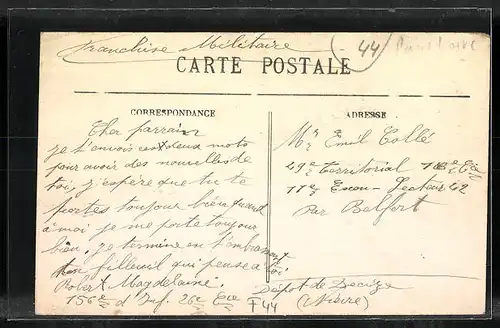 Franchise Militaire
44
CARTE POSTALE
CORRESPONDANCE
ADRESSE
Cher parrain
je t'envois ces deux mots
pour avoir des nouvelles de
toi, j'espère que tu te
portes toujour bien quand
à moi je me porte toujour
bien, je termine en t'embrassant
ton filleuil qui pense a toi
Robert Magdelaine
156e d'Inf. 26e Cie
Dépot de Decize
(Nièvre)
F44
Mr Emil Collé
49e territorial 18e Cie
11e Escou - Secteur 42
Par Belfort